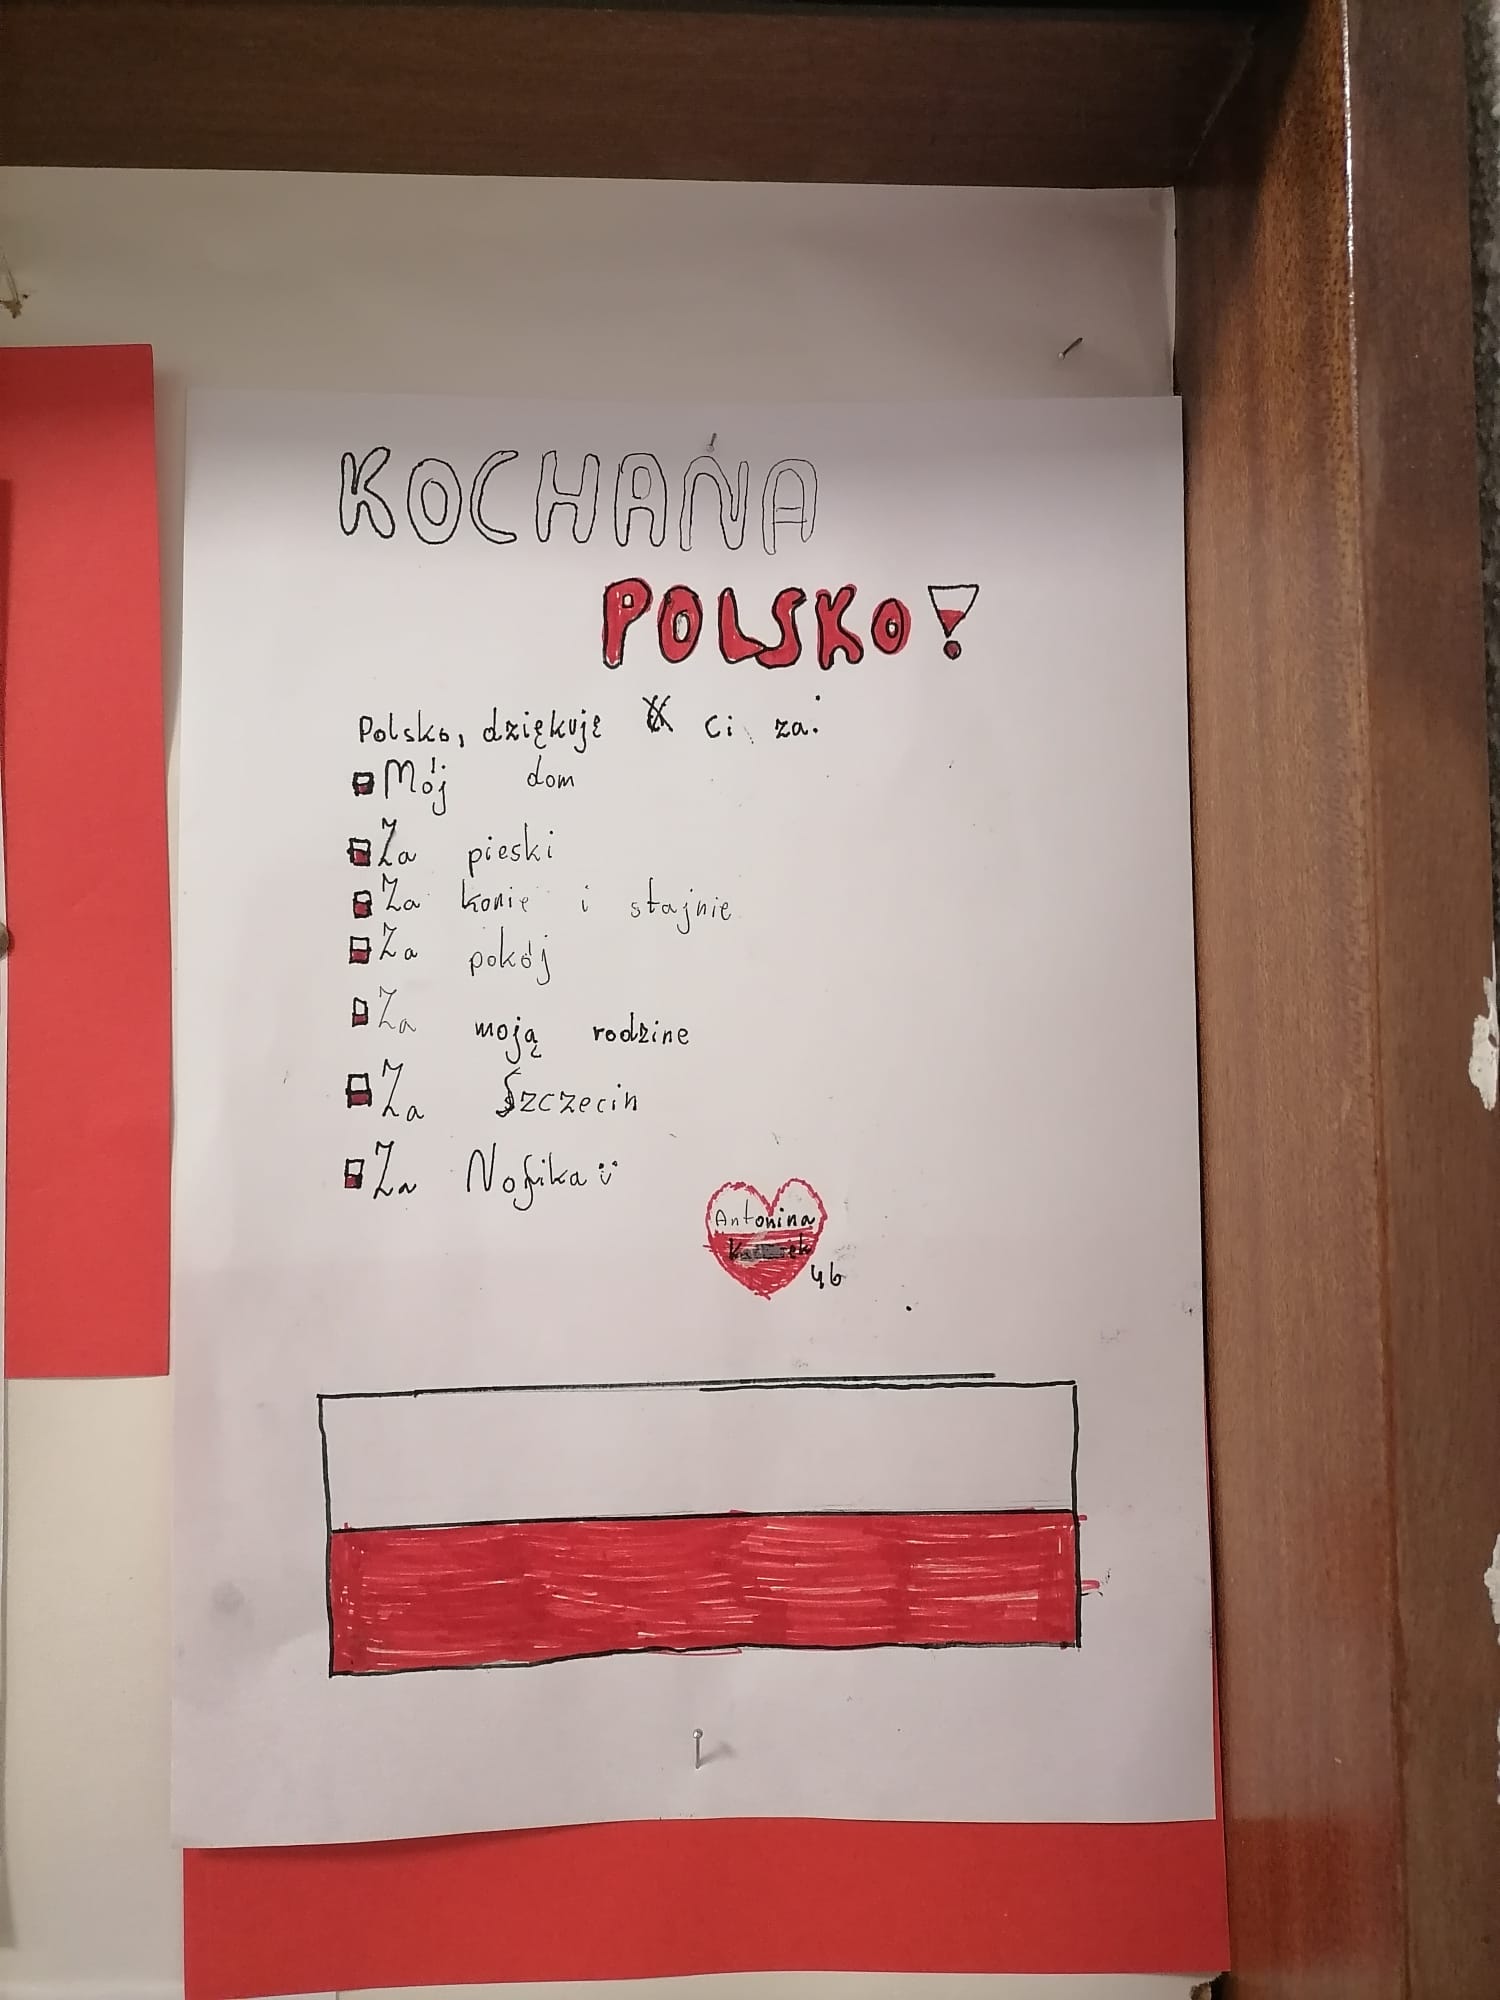 KOCHANA
POLSKO!
Polsko, dziękuję Ci za:
Mój dom
Za pieski
Za konie i stajnie
Za pokój
Za moją rodzine
Za Szczecin
Za
Antonina
4b